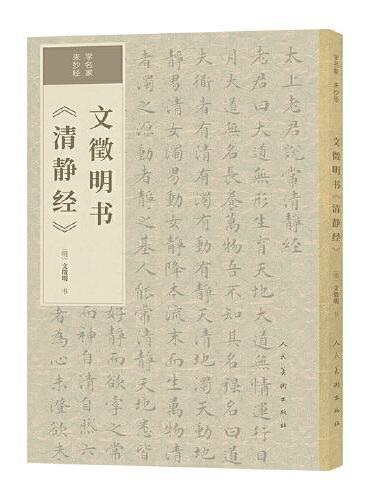 学名家
来抄经
文徵明书
《清静经》
[明] 文徵明 书
太上老君說常清静經
老君曰大道無形生育天地大道無情運行日
月大道無名長養萬物吾不知其名强名曰道
夫衟者有清有濁有動有静天清地濁天動地
静男清女濁男動女静降本流末而生萬物清
者濁之源動者静之基人能常清静天地悉皆
好静而欲牽之常
而神自清自然六
為心未澄欲未
学名家 来抄经
文徵明书《清静经》
[明] 文徵明 书
人民美术出版社